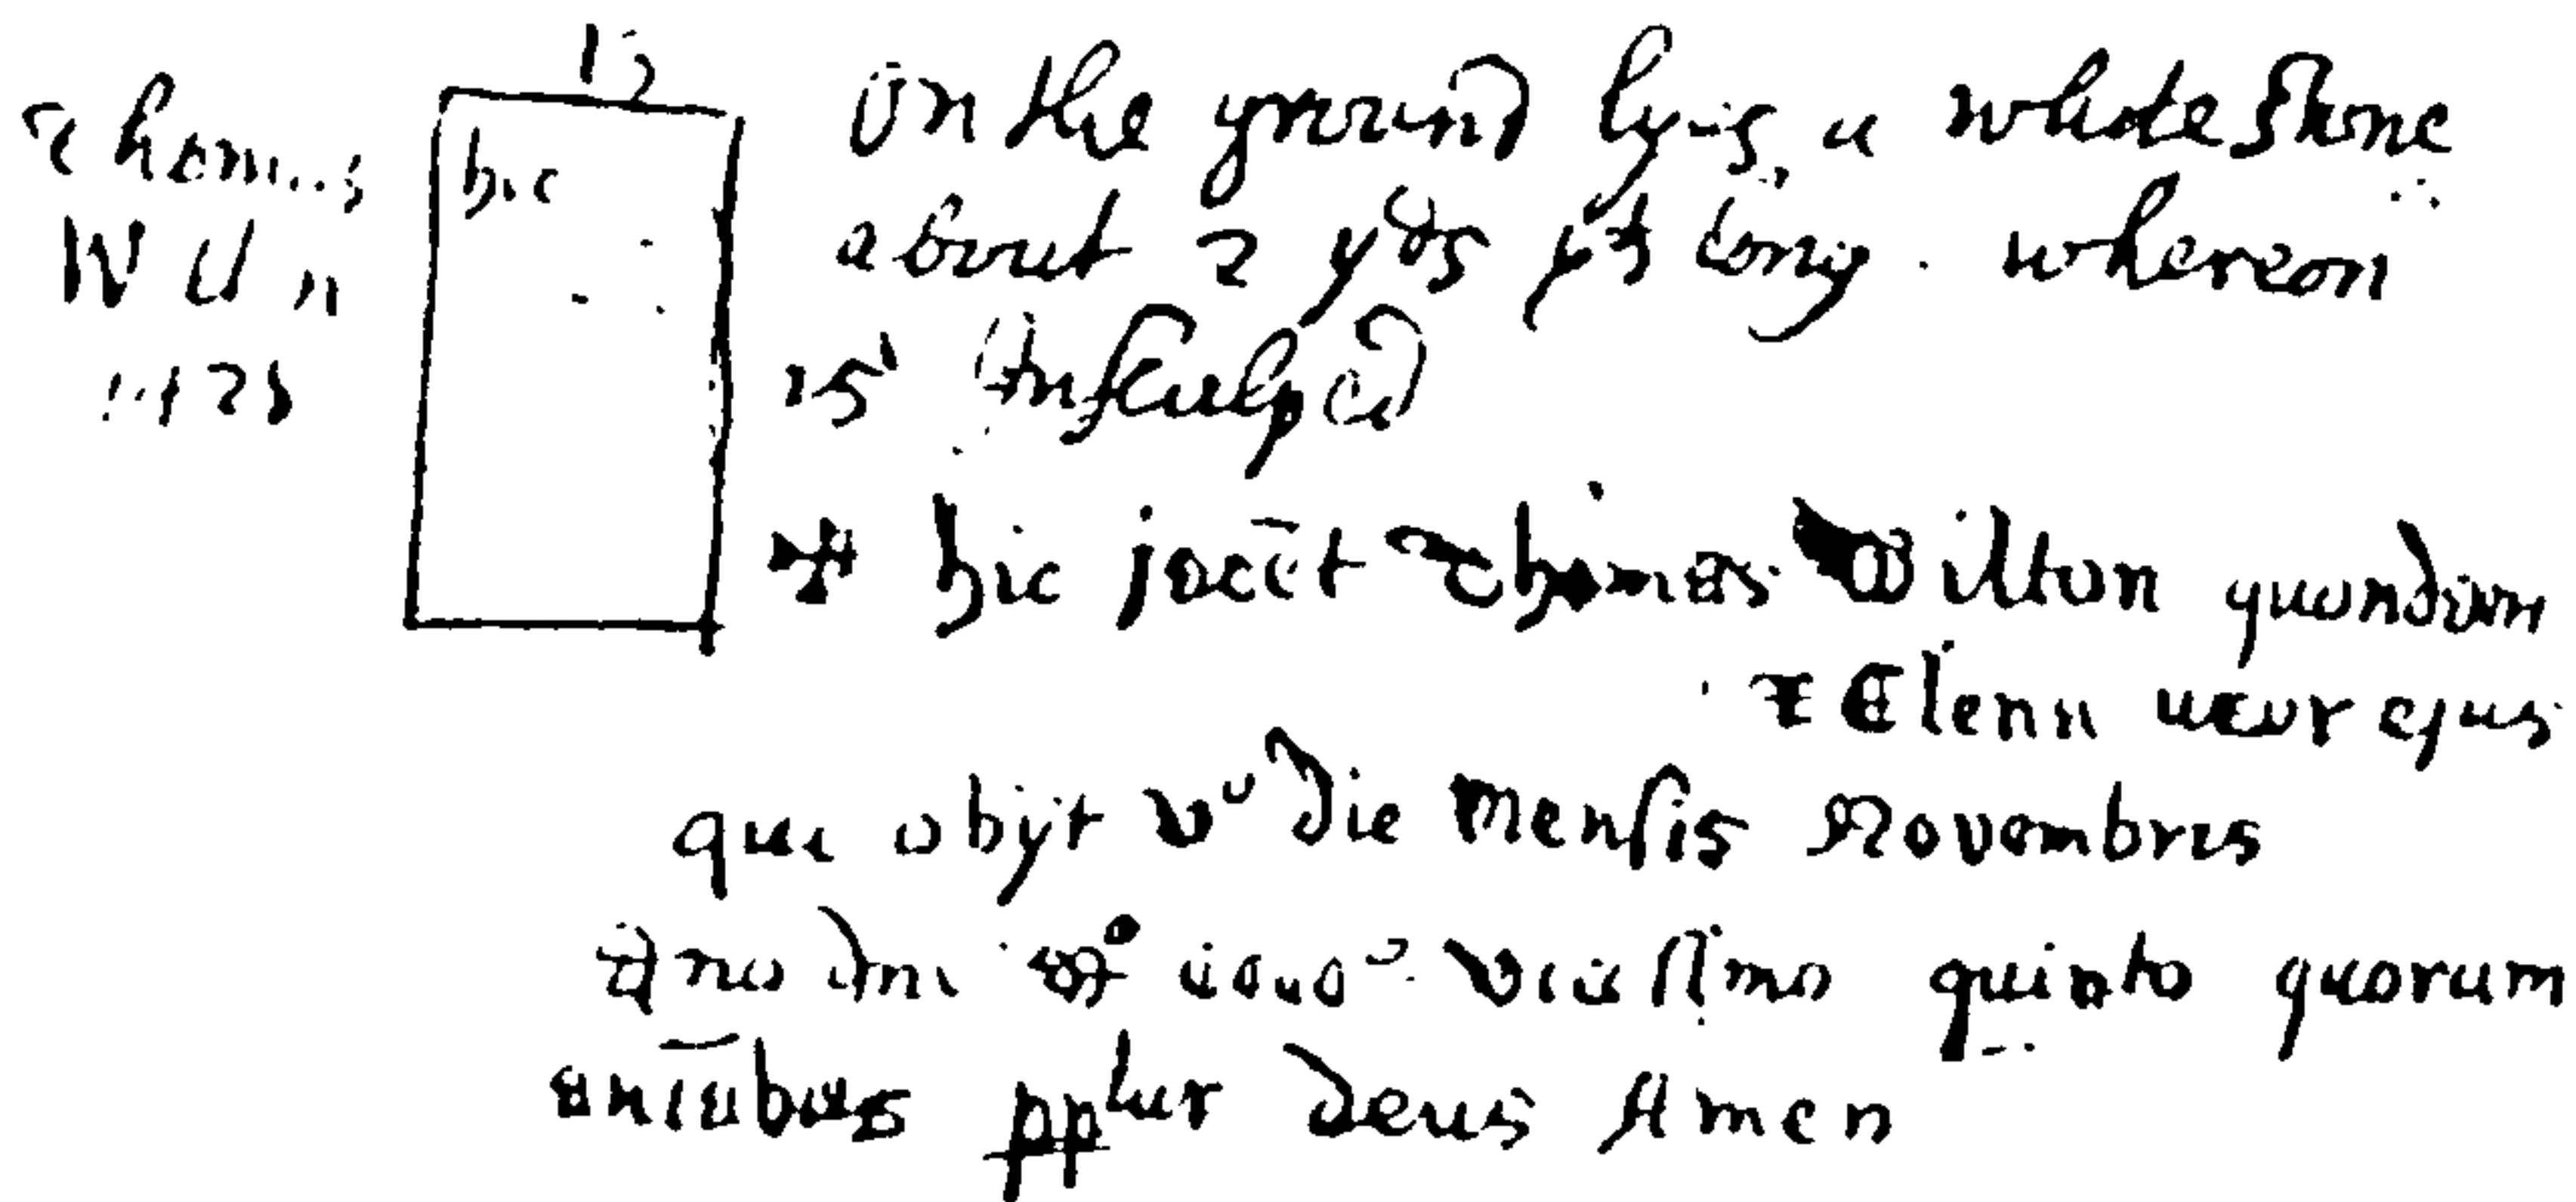 12
Thomas
Wiln
1425
hic
On the ground lyes a whole stone
about 2 yds long. whereon
is Insculped
✠ hic jacēt Thomas Wilton quondam
& Elena uxor ejus
qui obijt vº die Mensis Novembris
Ano Dni Mº ccccº vicessimo quinto quorum
aniābus pptur deus Amen